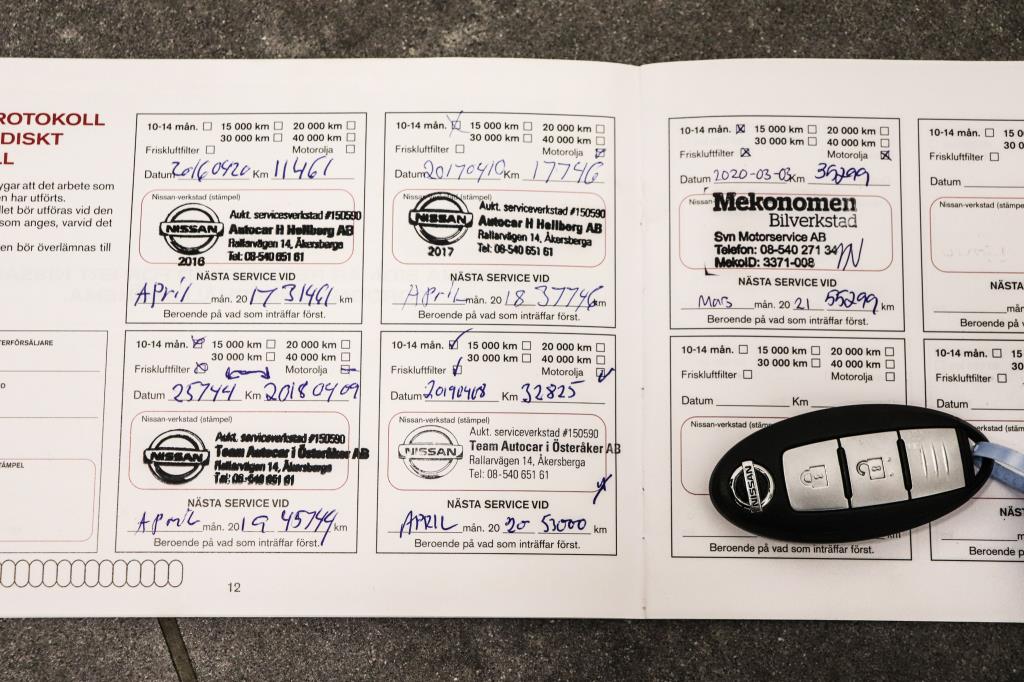 ROTOKOLL
DISKT
LL
ygar att det arbete som
en har utförts.
llet bör utföras vid den
som anges, varvid det
en bör överlämnas till
TERFÖRSÄLJARE
D
TÄMPEL
10-14 mån. 15 000 km 20 000 km
30 000 km 40 000 km
Friskluftfilter Motorolja
Datum 20160420 Km 11461
Nissan-verkstad (stämpel)
NISSAN
2016
Aukt. serviceverkstad #150590
Autocar H Hellberg AB
Rallarvägen 14, Åkersberga
Tel: 08-540 651 61
NÄSTA SERVICE VID
April mån. 2017 31461 km
Beroende på vad som inträffar först.
10-14 mån. 15 000 km 20 000 km
30 000 km 40 000 km
Friskluftfilter Motorolja
Datum 20170410 Km 17746
Nissan-verkstad (stämpel)
NISSAN
2017
Aukt. serviceverkstad #150590
Autocar H Hellberg AB
Rallarvägen 14, Åkersberga
Tel: 08-540 651 61
NÄSTA SERVICE VID
April mån. 2018 37746 km
Beroende på vad som inträffar först.
10-14 mån. 15 000 km 20 000 km
30 000 km 40 000 km
Friskluftfilter Motorolja
Datum 25744 Km 20180409
Nissan-verkstad (stämpel)
NISSAN
Aukt. serviceverkstad #150590
Team Autocar i Österåker AB
Rallarvägen 14, Åkersberga
Tel: 08-540 651 61
NÄSTA SERVICE VID
April mån. 2019 45744 km
Beroende på vad som inträffar först.
10-14 mån. 15 000 km 20 000 km
30 000 km 40 000 km
Friskluftfilter Motorolja
Datum 20190408 Km 32825
Nissan-verkstad (stämpel)
NISSAN
Aukt. serviceverkstad #150590
Team Autocar i Österåker AB
Rallarvägen 14, Åkersberga
Tel: 08-540 651 61
NÄSTA SERVICE VID
APRIL mån. 2020 53000 km
Beroende på vad som inträffar först.
12
10-14 mån. 15 000 km 20 000 km
30 000 km 40 000 km
Friskluftfilter Motorolja
Datum 2020-03-03 Km 35299
Nissan-
Mekonomen
Bilverkstad
Svn Motorservice AB
Telefon: 08-540 271 34
MekoID: 3371-008
NÄSTA SERVICE VID
Mars mån. 2021 55299 km
Beroende på vad som inträffar först.
10-14 mån. 15 000 km 20 000 km
30 000 km 40 000 km
Friskluftfilter Motorolja
Datum Km
Nissan-verkstad
NISSAN
km
Beroende på vad som inträffar först.
10-14 mån. 15 0
30 0
Friskluftfilter
Datum
Nissan-verkstad (stäm
NÄSTA
mån
Beroende på va
10-14 mån. 15
30
Friskluftfilter
Datum
NÄST
m
Beroende på v